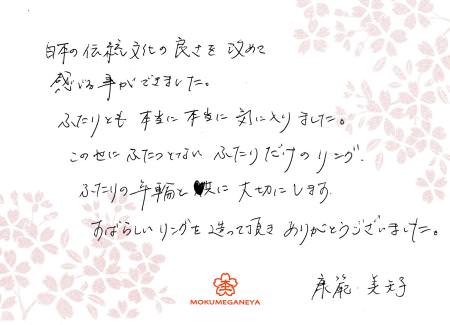 日本の伝統文化の良さを改めて
感じる事ができました。
ふたりとも 本当に本当に 気に入りました。
この世にふたつとない ふたりだけのリング、
ふたりの年輪と共に 大切にします。
すばらしいリングを造って頂き ありがとうございました。
康範・美子
MOKUMEGANEYA